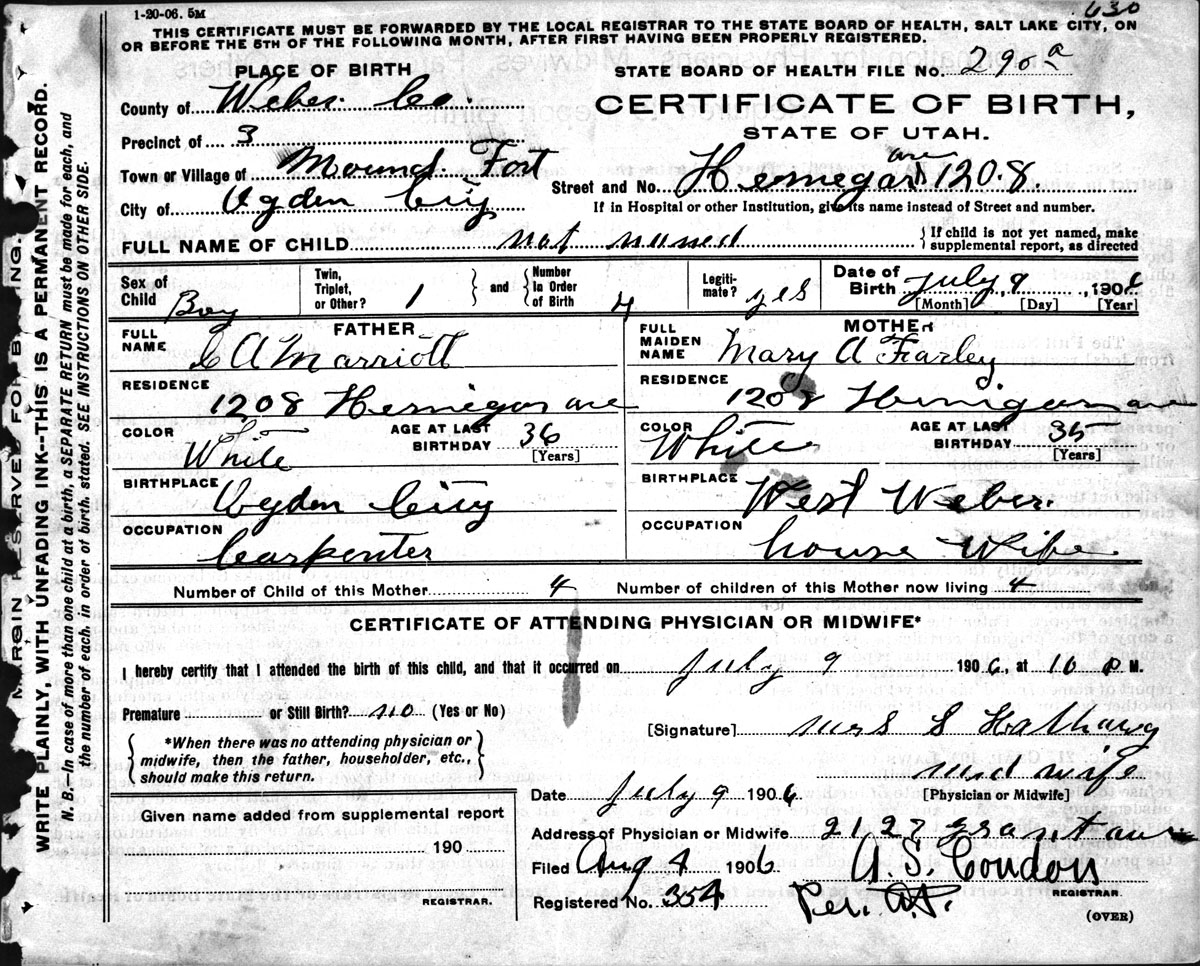 1-20-06. 5M
630
THIS CERTIFICATE MUST BE FORWARDED BY THE LOCAL REGISTRAR TO THE STATE BOARD OF HEALTH, SALT LAKE CITY, ON
OR BEFORE THE 5TH OF THE FOLLOWING MONTH, AFTER FIRST HAVING BEEN PROPERLY REGISTERED.
PLACE OF BIRTH
STATE BOARD OF HEALTH FILE No. 290 a
County of Weber Co.
CERTIFICATE OF BIRTH,
Precinct of 3
STATE OF UTAH.
Town or Village of Mound Fort
Street and No. ave 1208
City of Ogden City
If in Hospital or other Institution, give its name instead of Street and number.
FULL NAME OF CHILD not named
{If child is not yet named, make
supplemental report, as directed
Sex of Child Boy
Twin, Triplet, or Other? 1
and Number In Order of Birth 4
Legitimate? yes
Date of Birth July 9, 1906
[Month] [Day] [Year]
FATHER
FULL NAME C A Marriott
RESIDENCE
1208 ave
COLOR White
AGE AT LAST BIRTHDAY 36 [Years]
BIRTHPLACE
Ogden City
OCCUPATION
Carpenter
MOTHER
FULL MAIDEN NAME Mary A Farley
RESIDENCE
1208 ave
COLOR White
AGE AT LAST BIRTHDAY 35 [Years]
BIRTHPLACE
West Weber.
OCCUPATION
house Wife
Number of Child of this Mother 4 Number of children of this Mother now living 4
CERTIFICATE OF ATTENDING PHYSICIAN OR MIDWIFE*
I hereby certify that I attended the birth of this child, and that it occurred on July 9 1906, at 10 P M.
Premature or Still Birth? no (Yes or No)
[Signature] Mrs S
*When there was no attending physician or
midwife, then the father, householder, etc.,
should make this return.
mid wife
[Physician or Midwife]
Date July 9 1906
Given name added from supplemental report
190
REGISTRAR.
Address of Physician or Midwife 2127 grant ave
Filed Aug 4 1906 A. S. Condon
REGISTRAR.
Registered No. 354 Per.
(OVER)
MARGIN RESERVED FOR BINDING.
WRITE PLAINLY, WITH UNFADING INK--THIS IS A PERMANENT RECORD.
N. B.--In case of more than one child at a birth, a SEPARATE RETURN must be made for each, and
the number of each, in order of birth, stated. SEE INSTRUCTIONS ON OTHER SIDE.